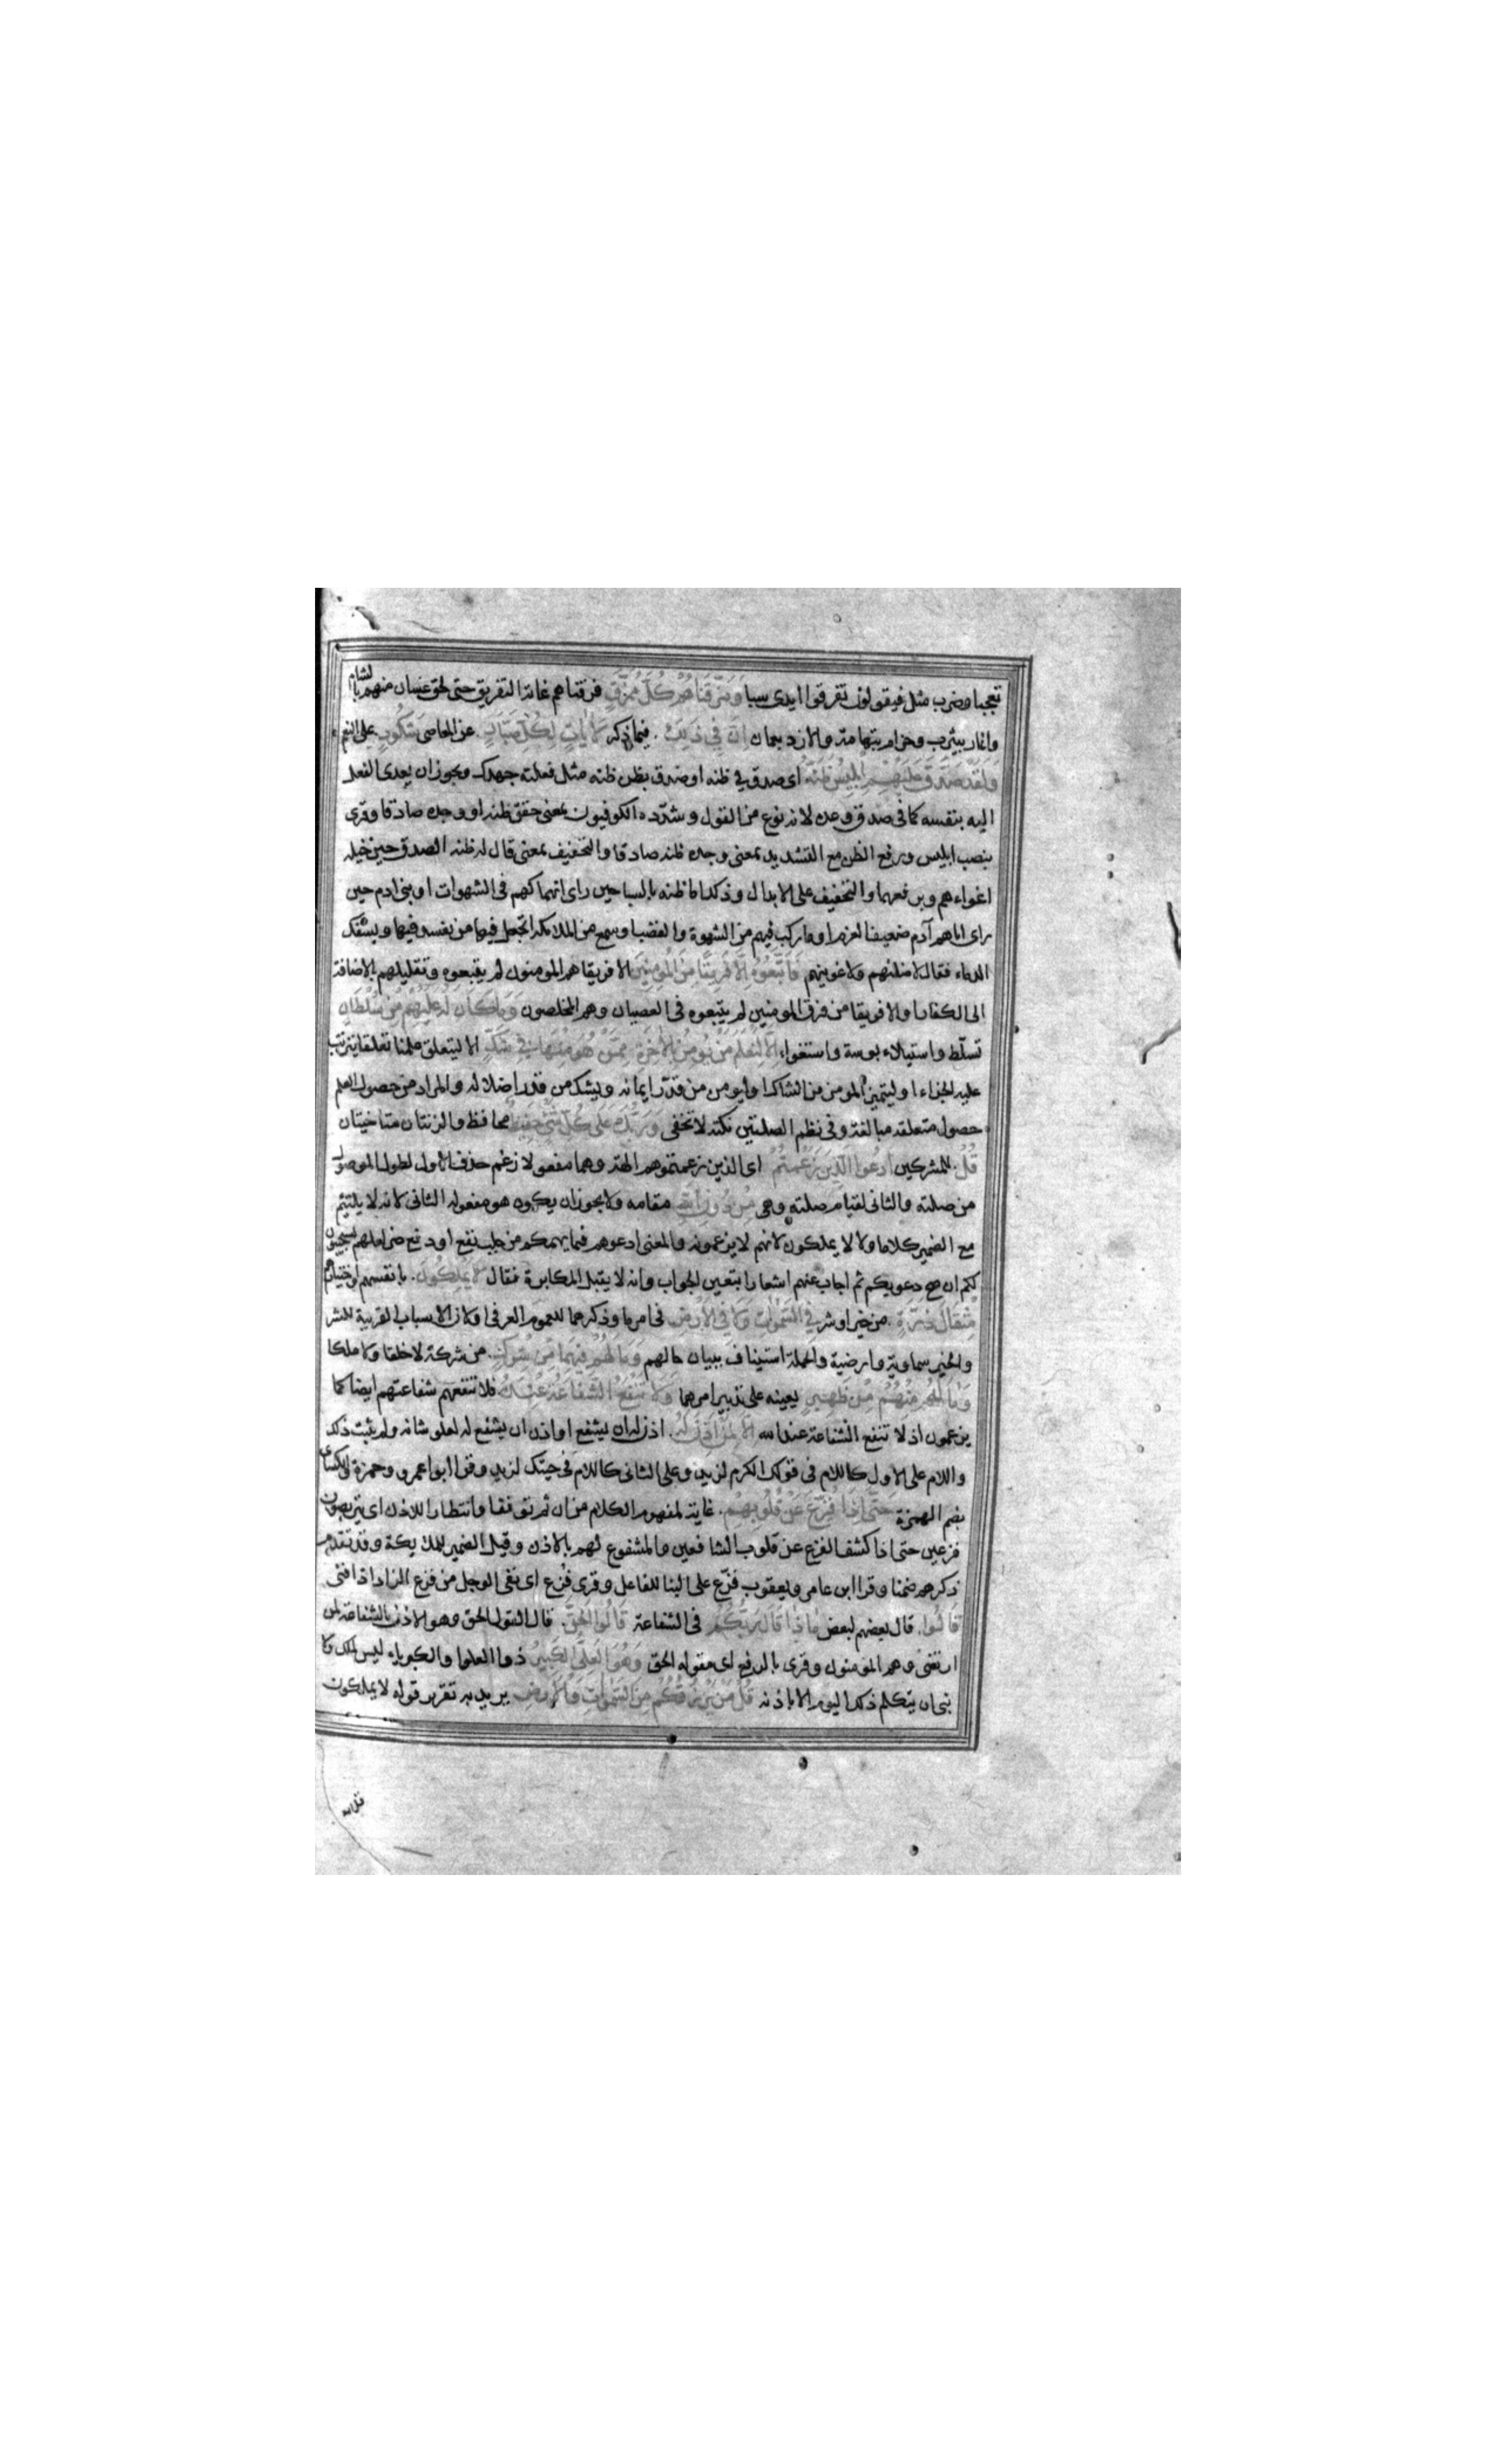 تعجبا وضرب مثل فيقولون تفرقوا ايدى سبا وَمَزَّقْنَاهُمْ كُلَّ مُمَزَّقٍ فرقناهم غاية التفريق حتى لحق غسان منهم بالشام
وانمار بيثرب وجزام بتهامة والازد بعمان اِنَّ فِى ذٰلِكَ فيما ذكر لَاٰيَاتٍ لِكُلِّ صَبَّارٍ عن المعاصى شَكُورٍ على النعم
وَلَقَدْ صَدَّقَ عَلَيْهِمْ اِبْلِيسُ ظَنَّهُ اى صدق في ظنه او صدق بظن ظنه مثل فعلته جهدك ويجوز ان يعدى الفعل
اليه بنفسه كما فى صدق وعده لانه نوع من القول وشدده الكوفيون بمعنى حقق ظنه او وجده صادقا وقرى
بنصب ابليس ورفع الظن مع التشديد بمعنى وجده ظنه صادقا والتخفيف بمعنى قال له ظنه الصدق حين خيله
اغواءهم وبرفعهما والتخفيف على الابدال وذلك اما ظنه بالسبا حين راى انهماكهم فى الشهوات او بنى ادم حين
راى اباهم آدم ضعيف العزم او ما ركب فيهم من الشهوة والغضب او سمع من الملائكة اتجعل فيها من يفسد فيها ويسفك
الدماء فقال لاضلنهم ولاغوينهم فَاتَّبَعُوهُ اِلَّا فَرِيقًا مِنَ الْمُؤمِنِينَ الا فريقا هم المومنون لم يتبعوه وتقليلهم بالاضافة
الى الكفار او الا فريقا من فرق المومنين لم يتبعوه فى العصيان وهم المخلصون وَمَا كَانَ لَهُ عَلَيْهِمْ مِنْ سُلْطَانٍ
تسلّط واستيلاء بوسة واستغواء اِلَّا لِنَعْلَمَ مَنْ يُومِنُ بِالْاٰخِرَةِ مِمَّنْ هُوَ مِنْهَا فِي شَكٍّ الا ليتعلق علمنا تعلقا يترتب
عليه الجزاء او ليتميز المومن من الشاك او ليومن من قدّر ايمانه ويشك من قدر اضلاله والمراد من حصول العلم
حصول متعلقه مبالغة وفى نظم الصلتين نكتة لا تخفى وَرَبُّكَ عَلَى كُلِّ شَيْءٍ حَفِيظٌ محافظ والزنتان متاخيتان
قُلْ للمشركين اُدْعُوا الَّذِينَ زَعَمْتُمْ اى الذين زعمتموهم الهة وهما مفعولا زعم حذف الاول لطول الموصول
من صلته والثانى لقيام صلته وهى مِنْ دُونِ اللهِ مقامه ولا يجوز ان يكون هو مفعوله الثانى لانه لا يلتئم
مع الضمير كلاما ولا لا يملكون لانهم لا يزعمونه والمعنى ادعوهم فيما يهمكم من جلب نفع او دفع ضر لعلهم يستجيبون
لكم ان صح دعويكم ثم اجاب عنهم اشعارا بتعين الجواب وانه لا يقبل المكابرة فقال لَا يَمْلِكُونَ بانفسهم
مِثْقَالَ ذَرَّةٍ من خير او شر فِي السَّمٰوَاتِ وَلَا فِي الْاَرْضِ فى امر ما وذكرهما للعموم العرفى او لان الاسباب القريبة للشر
والخير سماوية وارضية والجملة استيناف ببيان حالهم وَمَا لَهُمْ فِيهِمَا مِنْ شِرْكٍ من شركة لا خلقا ولا ملكا
وَمَا لَهُ مِنْهُمْ مِنْ ظَهِيرٍ يعينه على تدبير امرهما وَلَا تَنْفَعُ الشَّفَاعَةُ عِنْدَهُ فلا تنفعهم شفاعتهم ايضا كما
يزعمون اذ لا تنفع الشفاعة عند الله اِلَّا لِمَنْ اَذِنَ لَهُ اذن له ان يشفع او اذن ان يشفع له لعلو شانه ولم يثبت ذلك
واللام على الاول كاللام فى قولك الكرم لزيد وعلى الثانى كاللام فى جيتك لزيد وقرا ابو عمرو وحمزة والكسائى
بضم الهمزة حَتّٰى اِذَا فُزِّعَ عَنْ قُلُوبِهِمْ غاية لمفهوم الكلام من ان ثم توقفا وانتظارا للاذن اى يتربصون
فزعين حتى اذا كشف الفزع عن قلوب الشافعين والمشفوع لهم بالاذن وقيل الضمير للملايكة وقد تقدم
ذكرهم ضمنا وقرا ابن عامر ويعقوب فزّع على البنا للفاعل وقرى فُرّغ اى نفى الوجل من فرغ الزاد اذا فنى
قَالُوا قال بعضهم لبعض مَاذَا قَالَ رَبُّكُمْ فى الشفاعة قَالُوا الْحَقَّ قال القول الحق وهو الاذن بالشفاعة لمن
ارتضى وهم المؤمنون وقرى بالرفع اى مقوله الحق وَهُوَ الْعَلِيُّ الْكَبِيرُ ذوا العلوا والكبرياء ليس لملك ولا
نبى ان يتكلم ذلك اليوم الا باذنه قُلْ مَنْ يَرْزُقُكُمْ مِنَ السَّمٰوَاتِ وَالْاَرْضِ يريد به تقرير قوله لا يملكون